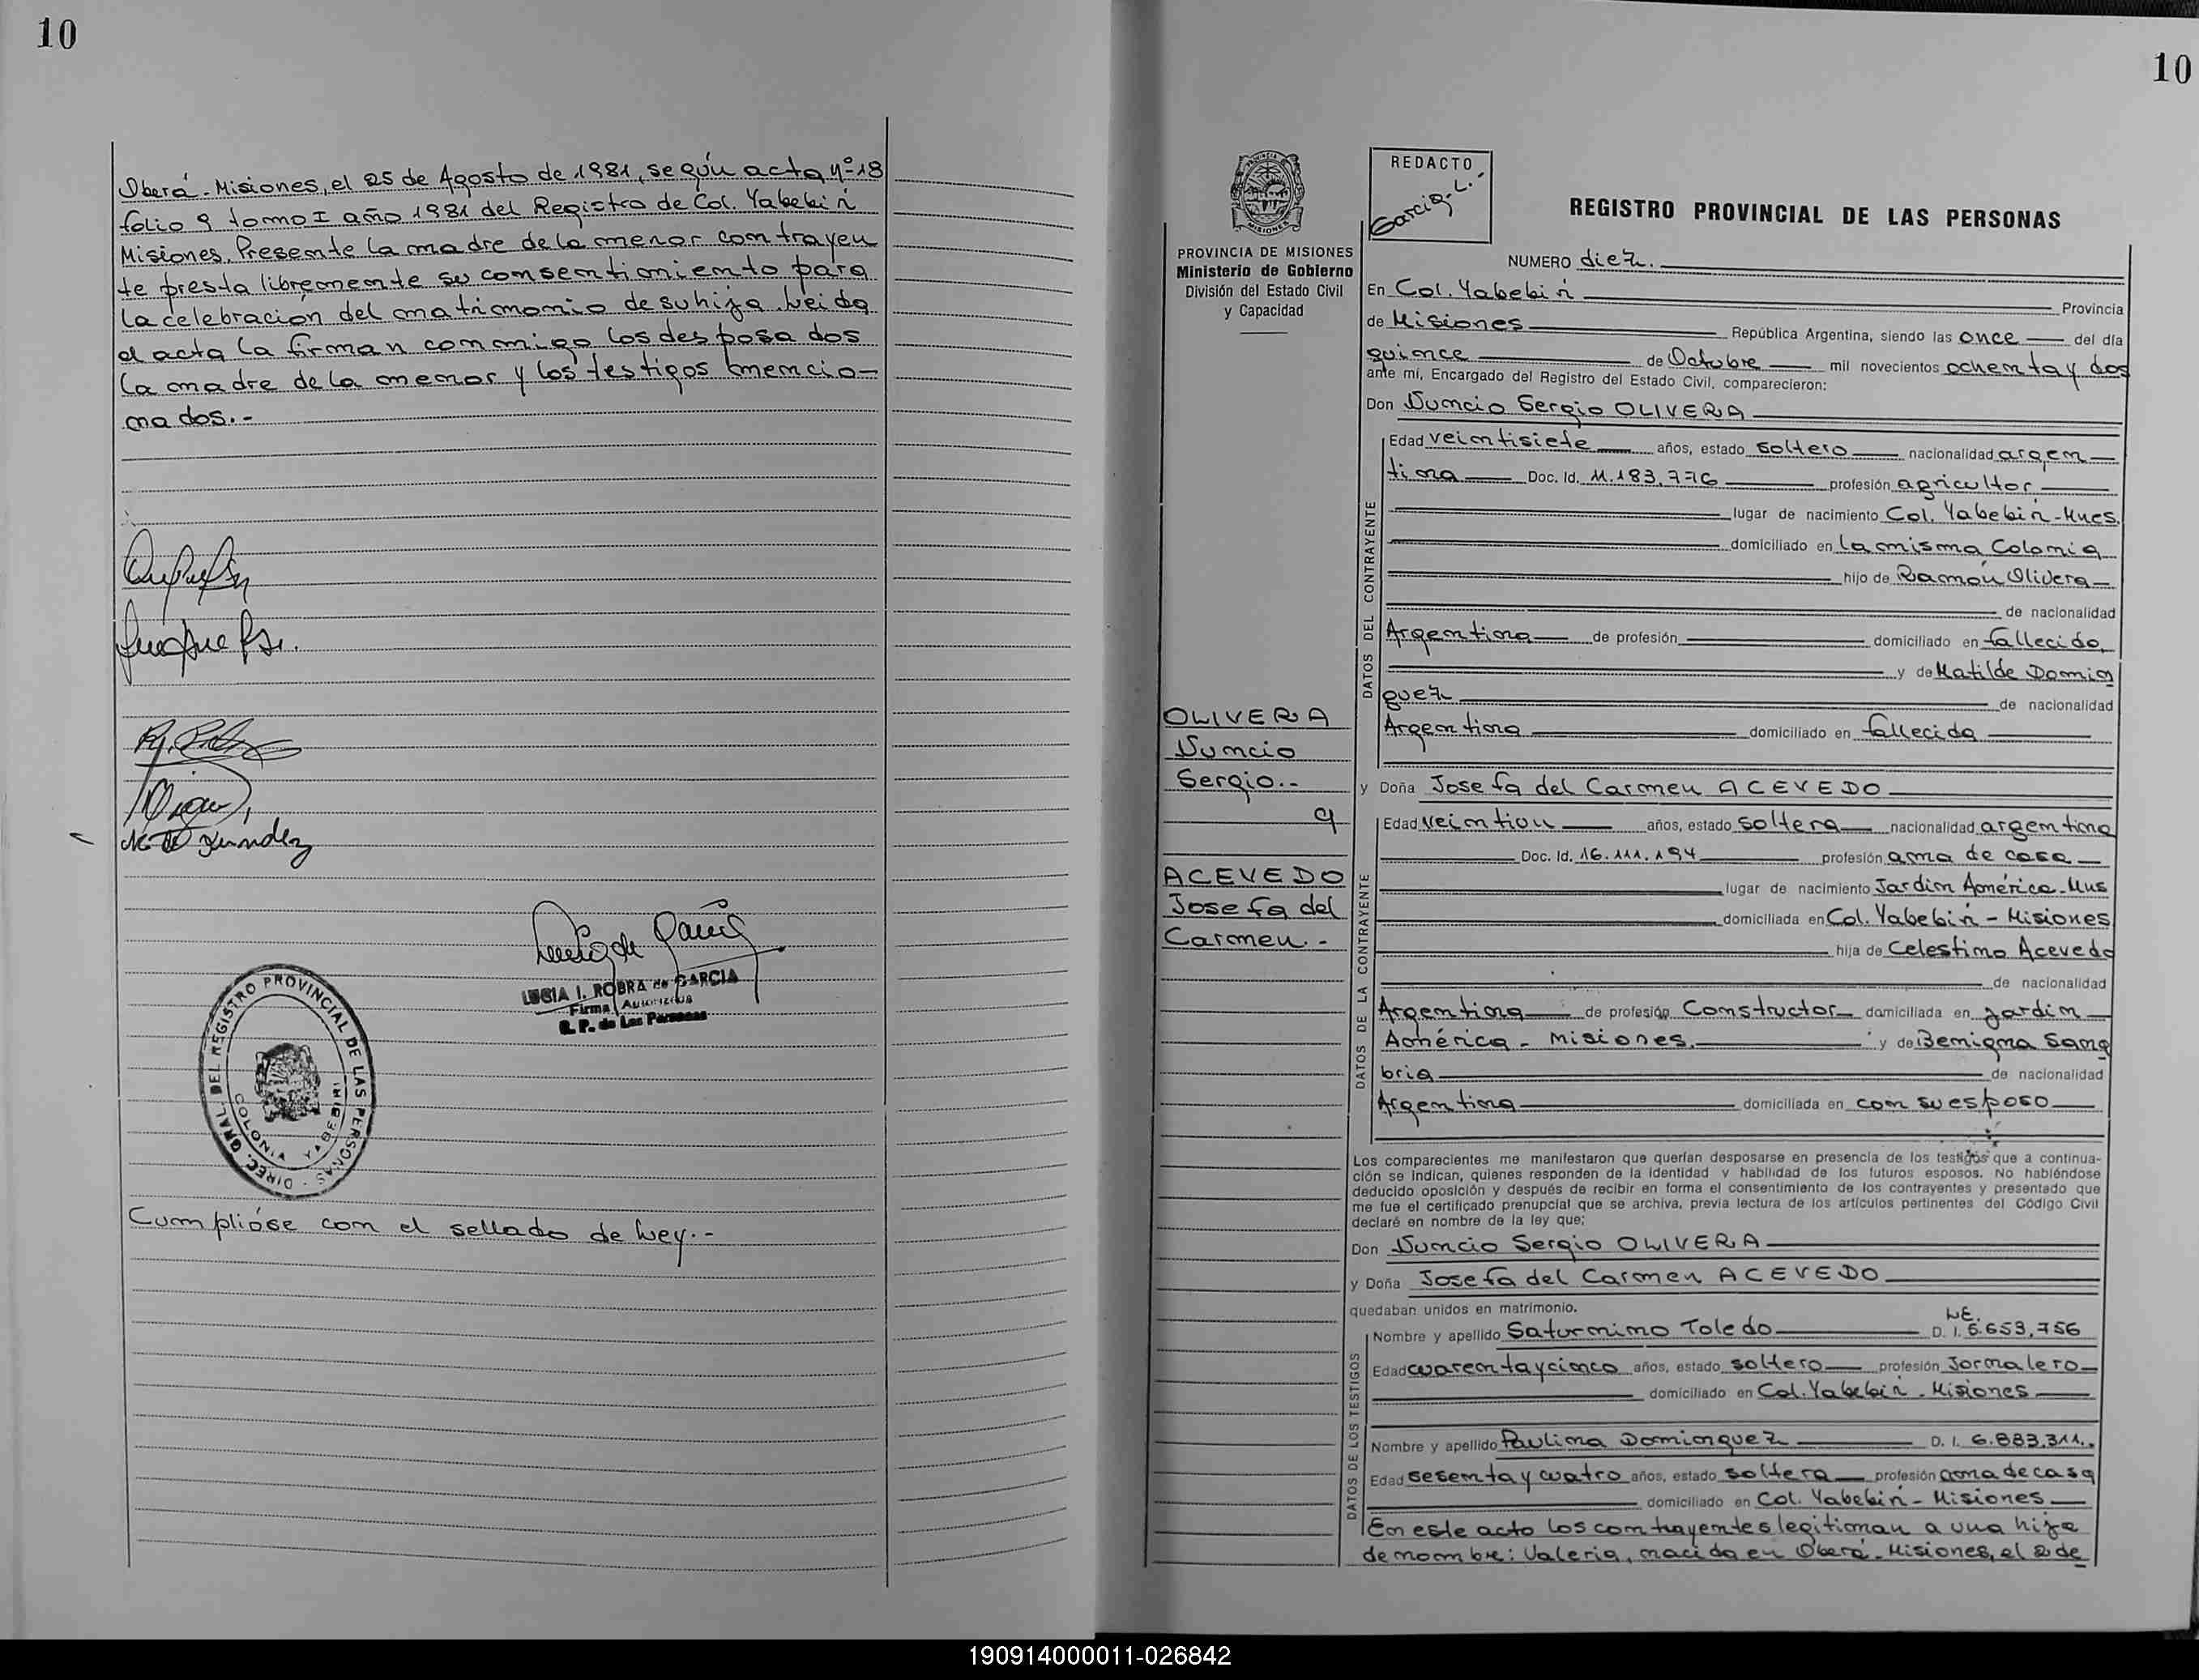 10
Oberá-Misiones, el 25 de Agosto de 1981, según acta nº 18
folio 9 tomo I año 1981 del Registro de Col. Yabebirí
Misiones. Presente la madre de la menor contrayen
te presta libremente su consentimiento para
la celebración del matrimonio de su hija. Leida
el acta la firman conmigo los desposados
la madre de la menor y los testigos mencio-
nados.-
LUCIA I. ROBRA de GARCIA
Firma Autorizada
R. P. de Las Personas
DIREC. GRAL. DEL REGISTRO PROVINCIAL DE LAS PERSONAS
COLONIA YABEBIRI
Cumplióse con el sellado de Ley.-
10
PROVINCIA DE MISIONES
Ministerio de Gobierno
División del Estado Civil
y Capacidad
OLIVERA
Nuncio
Sergio.-
ACEVEDO
Josefa del
Carmen.-
REDACTO
Garcia, L.
REGISTRO PROVINCIAL DE LAS PERSONAS
NUMERO diez.
En Col. Yabebirí Provincia
de Misiones República Argentina, siendo las once del día
quince de Octubre mil novecientos ochenta y dos
ante mí, Encargado del Registro del Estado Civil, comparecieron:
Don Nuncio Sergio OLIVERA
DATOS DEL CONTRAYENTE
Edad veintisiete años, estado soltero nacionalidad argen
tina Doc. Id. 11.183.776 profesión agricultor
lugar de nacimiento Col. Yabebirí-Mnes.
domiciliado en la misma Colonia
hijo de Ramón Olivera
de nacionalidad
Argentina de profesión domiciliado en fallecido
y de Matilde Domin
guez de nacionalidad
Argentina domiciliado en fallecida
y Doña Josefa del Carmen ACEVEDO
DATOS DE LA CONTRAYENTE
Edad veintiun años, estado soltera nacionalidad argentina
Doc. Id. 16.111.194 profesión ama de casa
lugar de nacimiento Jardin América-Mns
domiciliada en Col. Yabebirí - Misiones
hija de Celestino Acevedo
de nacionalidad
Argentina de profesión Constructor domiciliada en Jardin
América - Misiones. y de Benigna Sana
bria de nacionalidad
Argentina domiciliada en con su esposo
Los comparecientes me manifestaron que querían desposarse en presencia de los testigos que a continua-
ción se indican, quienes responden de la identidad y habilidad de los futuros esposos. No habiéndose
deducido oposición y después de recibir en forma el consentimiento de los contrayentes y presentado que
me fue el certificado prenupcial que se archiva, previa lectura de los artículos pertinentes del Código Civil
declaré en nombre de la ley que:
Don Nuncio Sergio OLIVERA
y Doña Josefa del Carmen ACEVEDO
quedaban unidos en matrimonio.
DATOS DE LOS TESTIGOS
LE.
Nombre y apellido Saturnino Toledo D. I. 5.653.756
Edad cuarenta y cinco años, estado soltero profesión Jornalero
domiciliado en Col. Yabebirí - Misiones
Nombre y apellido Paulina Dominguez D. I. 6.883.311.
Edad sesenta y cuatro años, estado soltera profesión ama de casa
domiciliado en Col. Yabebirí - Misiones
En este acto los contrayentes legitiman a una hija
de nombre: Valeria, nacida en Oberá - Misiones, el 2 de
190914000011-026842